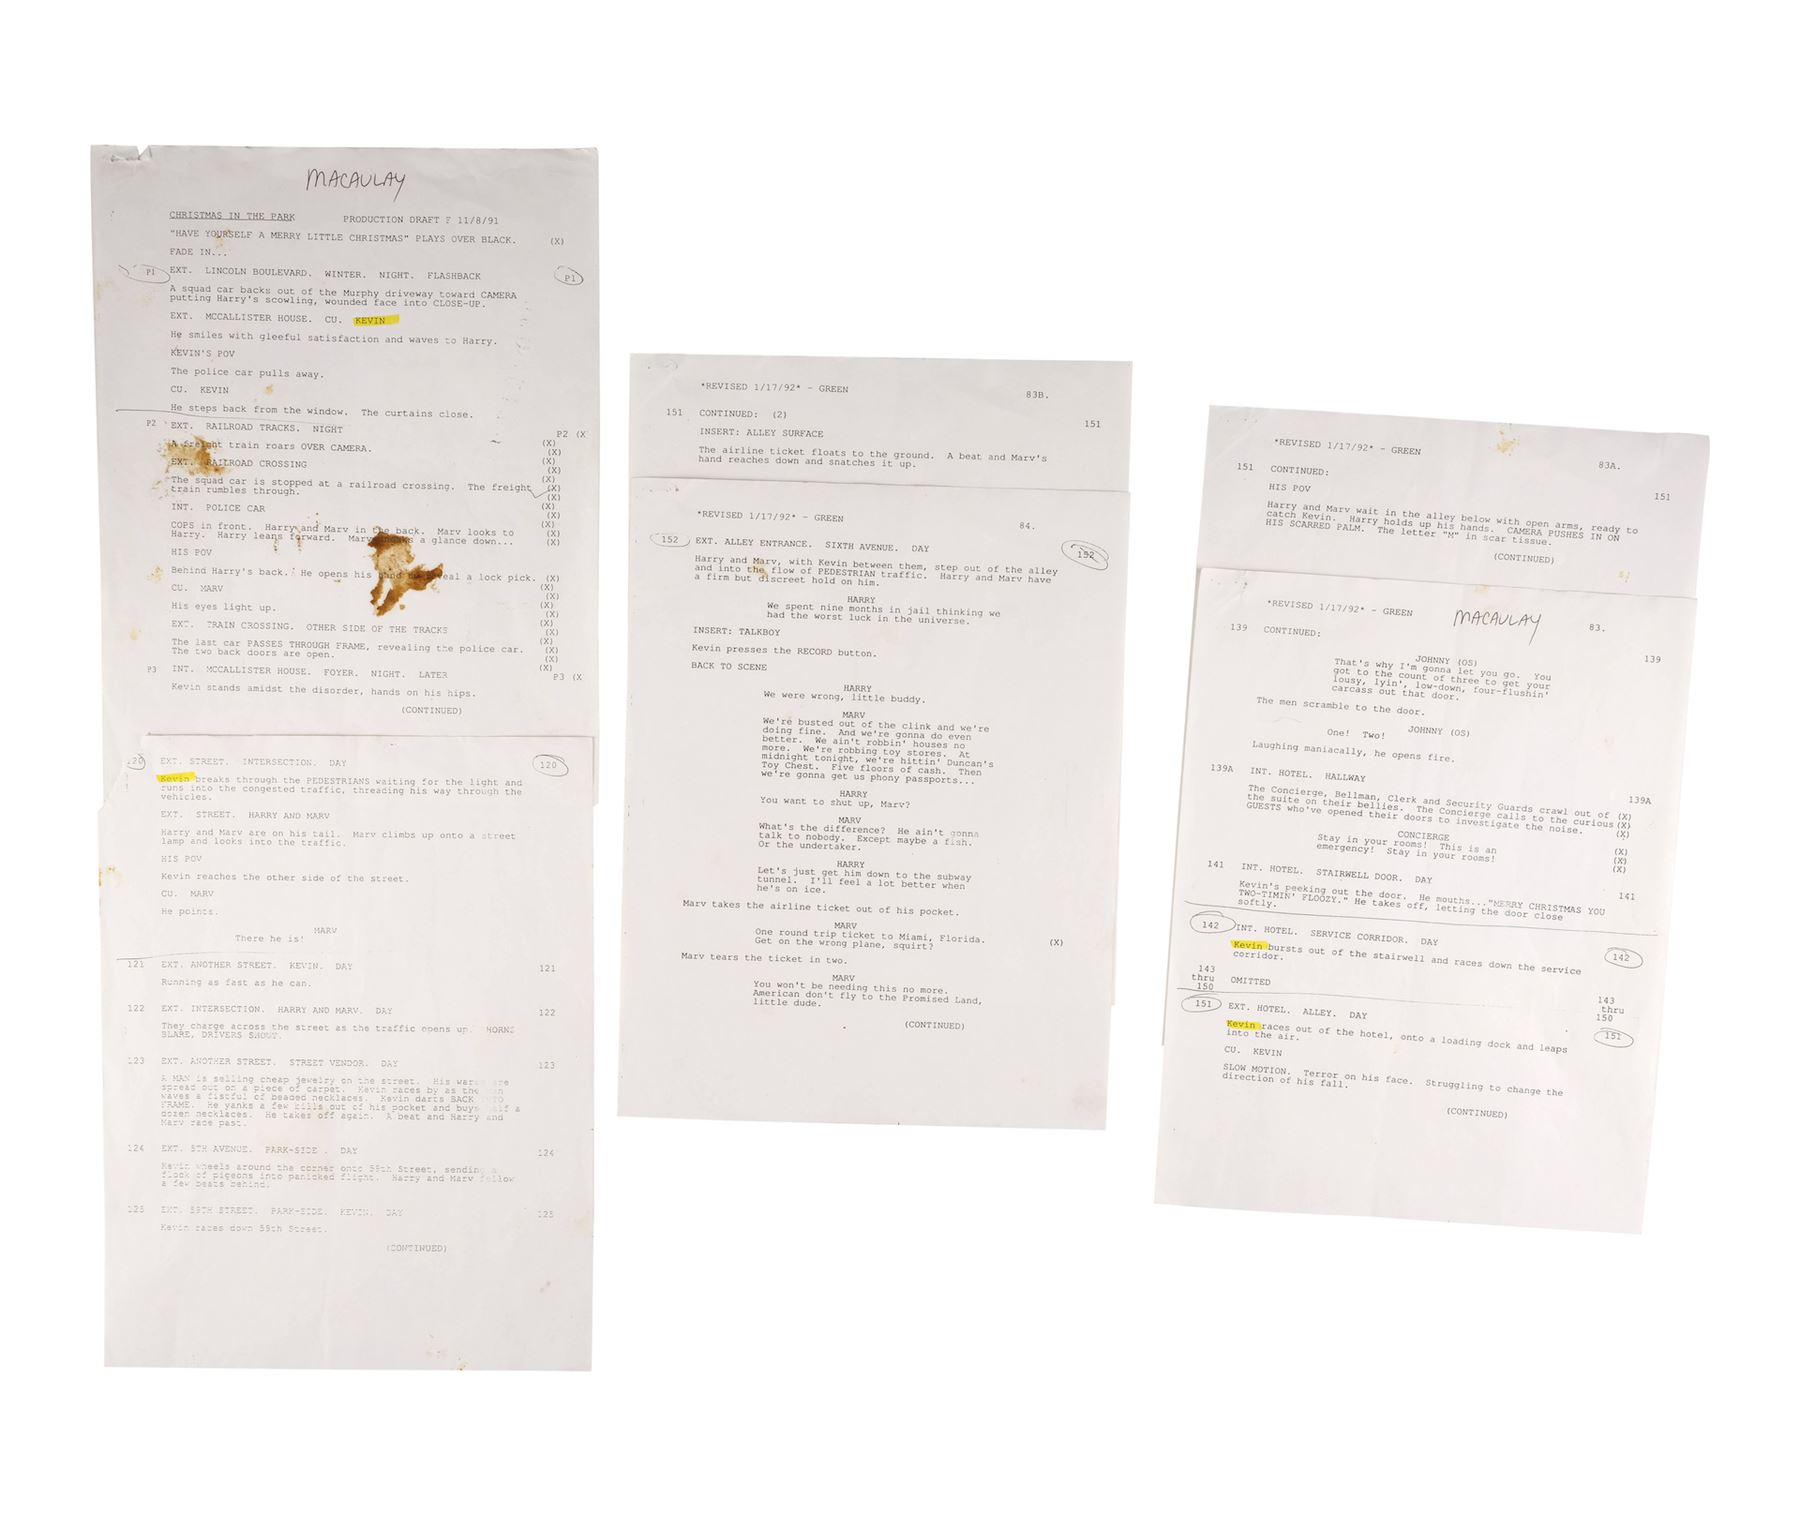 MACAULAY
CHRISTMAS IN THE PARK PRODUCTION DRAFT F 11/8/91
"HAVE YOURSELF A MERRY LITTLE CHRISTMAS" PLAYS OVER BLACK. (X)
FADE IN...
P1 EXT. LINCOLN BOULEVARD. WINTER. NIGHT. FLASHBACK P1
A squad car backs out of the Murphy driveway toward CAMERA
putting Harry's scowling, wounded face into CLOSE-UP.
EXT. MCCALLISTER HOUSE. CU. KEVIN
He smiles with gleeful satisfaction and waves to Harry.
KEVIN'S POV
The police car pulls away.
CU. KEVIN
He steps back from the window. The curtains close.
P2 EXT. RAILROAD TRACKS. NIGHT P2 (X
(X)
A freight train roars OVER CAMERA. (X)
EXT. RAILROAD CROSSING (X)
(X)
The squad car is stopped at a railroad crossing. The freight (X)
train rumbles through. (X)
(X)
INT. POLICE CAR (X)
(X)
COPS in front. Harry and Marv in the back. Marv looks to (X)
Harry. Harry leans forward. Marv a glance down... (X)
HIS POV
Behind Harry's back. He opens his hand to reveal a lock pick. (X)
CU. MARV (X)
(X)
His eyes light up. (X)
(X)
EXT. TRAIN CROSSING. OTHER SIDE OF THE TRACKS (X)
(X)
The last car PASSES THROUGH FRAME, revealing the police car. (X)
The two back doors are open. (X)
(X)
P3 INT. MCCALLISTER HOUSE. FOYER. NIGHT. LATER (X)
P3 (X
Kevin stands amidst the disorder, hands on his hips.
(CONTINUED)
120 EXT. STREET. INTERSECTION. DAY 120
Kevin breaks through the PEDESTRIANS waiting for the light and
runs into the congested traffic, threading his way through the
vehicles.
EXT. STREET. HARRY AND MARV
Harry and Marv are on his tail. Marv climbs up onto a street
lamp and looks into the traffic.
HIS POV
Kevin reaches the other side of the street.
CU. MARV
He points.
MARV
There he is!
121 EXT. ANOTHER STREET. KEVIN. DAY 121
Running as fast as he can.
122 EXT. INTERSECTION. HARRY AND MARV. DAY 122
They charge across the street as the traffic opens up. HORNS
BLARE, DRIVERS SHOUT.
123 EXT. ANOTHER STREET. STREET VENDOR. DAY 123
A MAN is selling cheap jewelry on the street. His wares are
spread out on a piece of carpet. Kevin races by as the man
waves a fistful of beaded necklaces. Kevin darts BACK INTO
FRAME. He yanks a few bills out of his pocket and buys half a
dozen necklaces. He takes off again. A beat and Harry and
Marv race past.
124 EXT. 5TH AVENUE. PARK-SIDE. DAY 124
Kevin wheels around the corner onto 59th Street, sending a
flock of pigeons into panicked flight. Harry and Marv follow
a few beats behind.
125 EXT. 59TH STREET. PARK-SIDE. KEVIN. DAY 125
Kevin races down 59th Street.
(CONTINUED)
*REVISED 1/17/92* - GREEN 83B.
151 CONTINUED: (2) 151
INSERT: ALLEY SURFACE
The airline ticket floats to the ground. A beat and Marv's
hand reaches down and snatches it up.
*REVISED 1/17/92* - GREEN 84.
152 EXT. ALLEY ENTRANCE. SIXTH AVENUE. DAY 152
Harry and Marv, with Kevin between them, step out of the alley
and into the flow of PEDESTRIAN traffic. Harry and Marv have
a firm but discreet hold on him.
HARRY
We spent nine months in jail thinking we
had the worst luck in the universe.
INSERT: TALKBOY
Kevin presses the RECORD button.
BACK TO SCENE
HARRY
We were wrong, little buddy.
MARV
We're busted out of the clink and we're
doing fine. And we're gonna do even
better. We ain't robbin' houses no
more. We're robbing toy stores. At
midnight tonight, we're hittin' Duncan's
Toy Chest. Five floors of cash. Then
we're gonna get us phony passports...
HARRY
You want to shut up, Marv?
MARV
What's the difference? He ain't gonna
talk to nobody. Except maybe a fish.
Or the undertaker.
HARRY
Let's just get him down to the subway
tunnel. I'll feel a lot better when
he's on ice.
Marv takes the airline ticket out of his pocket.
MARV
One round trip ticket to Miami, Florida.
Get on the wrong plane, squirt? (X)
Marv tears the ticket in two.
MARV
You won't be needing this no more.
American don't fly to the Promised Land,
little dude.
(CONTINUED)
*REVISED 1/17/92* - GREEN 83A.
151 CONTINUED: 151
HIS POV
Harry and Marv wait in the alley below with open arms, ready to
catch Kevin. Harry holds up his hands. CAMERA PUSHES IN ON
HIS SCARRED PALM. The letter "M" in scar tissue.
(CONTINUED)
*REVISED 1/17/92* - GREEN MACAULAY 83.
139 CONTINUED: 139
JOHNNY (OS)
That's why I'm gonna let you go. You
got to the count of three to get your
lousy, lyin', low-down, four-flushin'
carcass out that door.
The men scramble to the door.
JOHNNY (OS)
One! Two!
Laughing maniacally, he opens fire.
139A INT. HOTEL. HALLWAY 139A
The Concierge, Bellman, Clerk and Security Guards crawl out of (X)
the suite on their bellies. The Concierge calls to the curious (X)
GUESTS who've opened their doors to investigate the noise. (X)
CONCIERGE
Stay in your rooms! This is an (X)
emergency! Stay in your rooms! (X)
(X)
141 INT. HOTEL. STAIRWELL DOOR. DAY 141
Kevin's peeking out the door. He mouths..."MERRY CHRISTMAS YOU
TWO-TIMIN' FLOOZY." He takes off, letting the door close
softly.
142 INT. HOTEL. SERVICE CORRIDOR. DAY 142
Kevin bursts out of the stairwell and races down the service
corridor.
143 thru 150 OMITTED 143 thru 150
151 EXT. HOTEL. ALLEY. DAY 151
Kevin races out of the hotel, onto a loading dock and leaps
into the air.
CU. KEVIN
SLOW MOTION. Terror on his face. Struggling to change the
direction of his fall.
(CONTINUED)